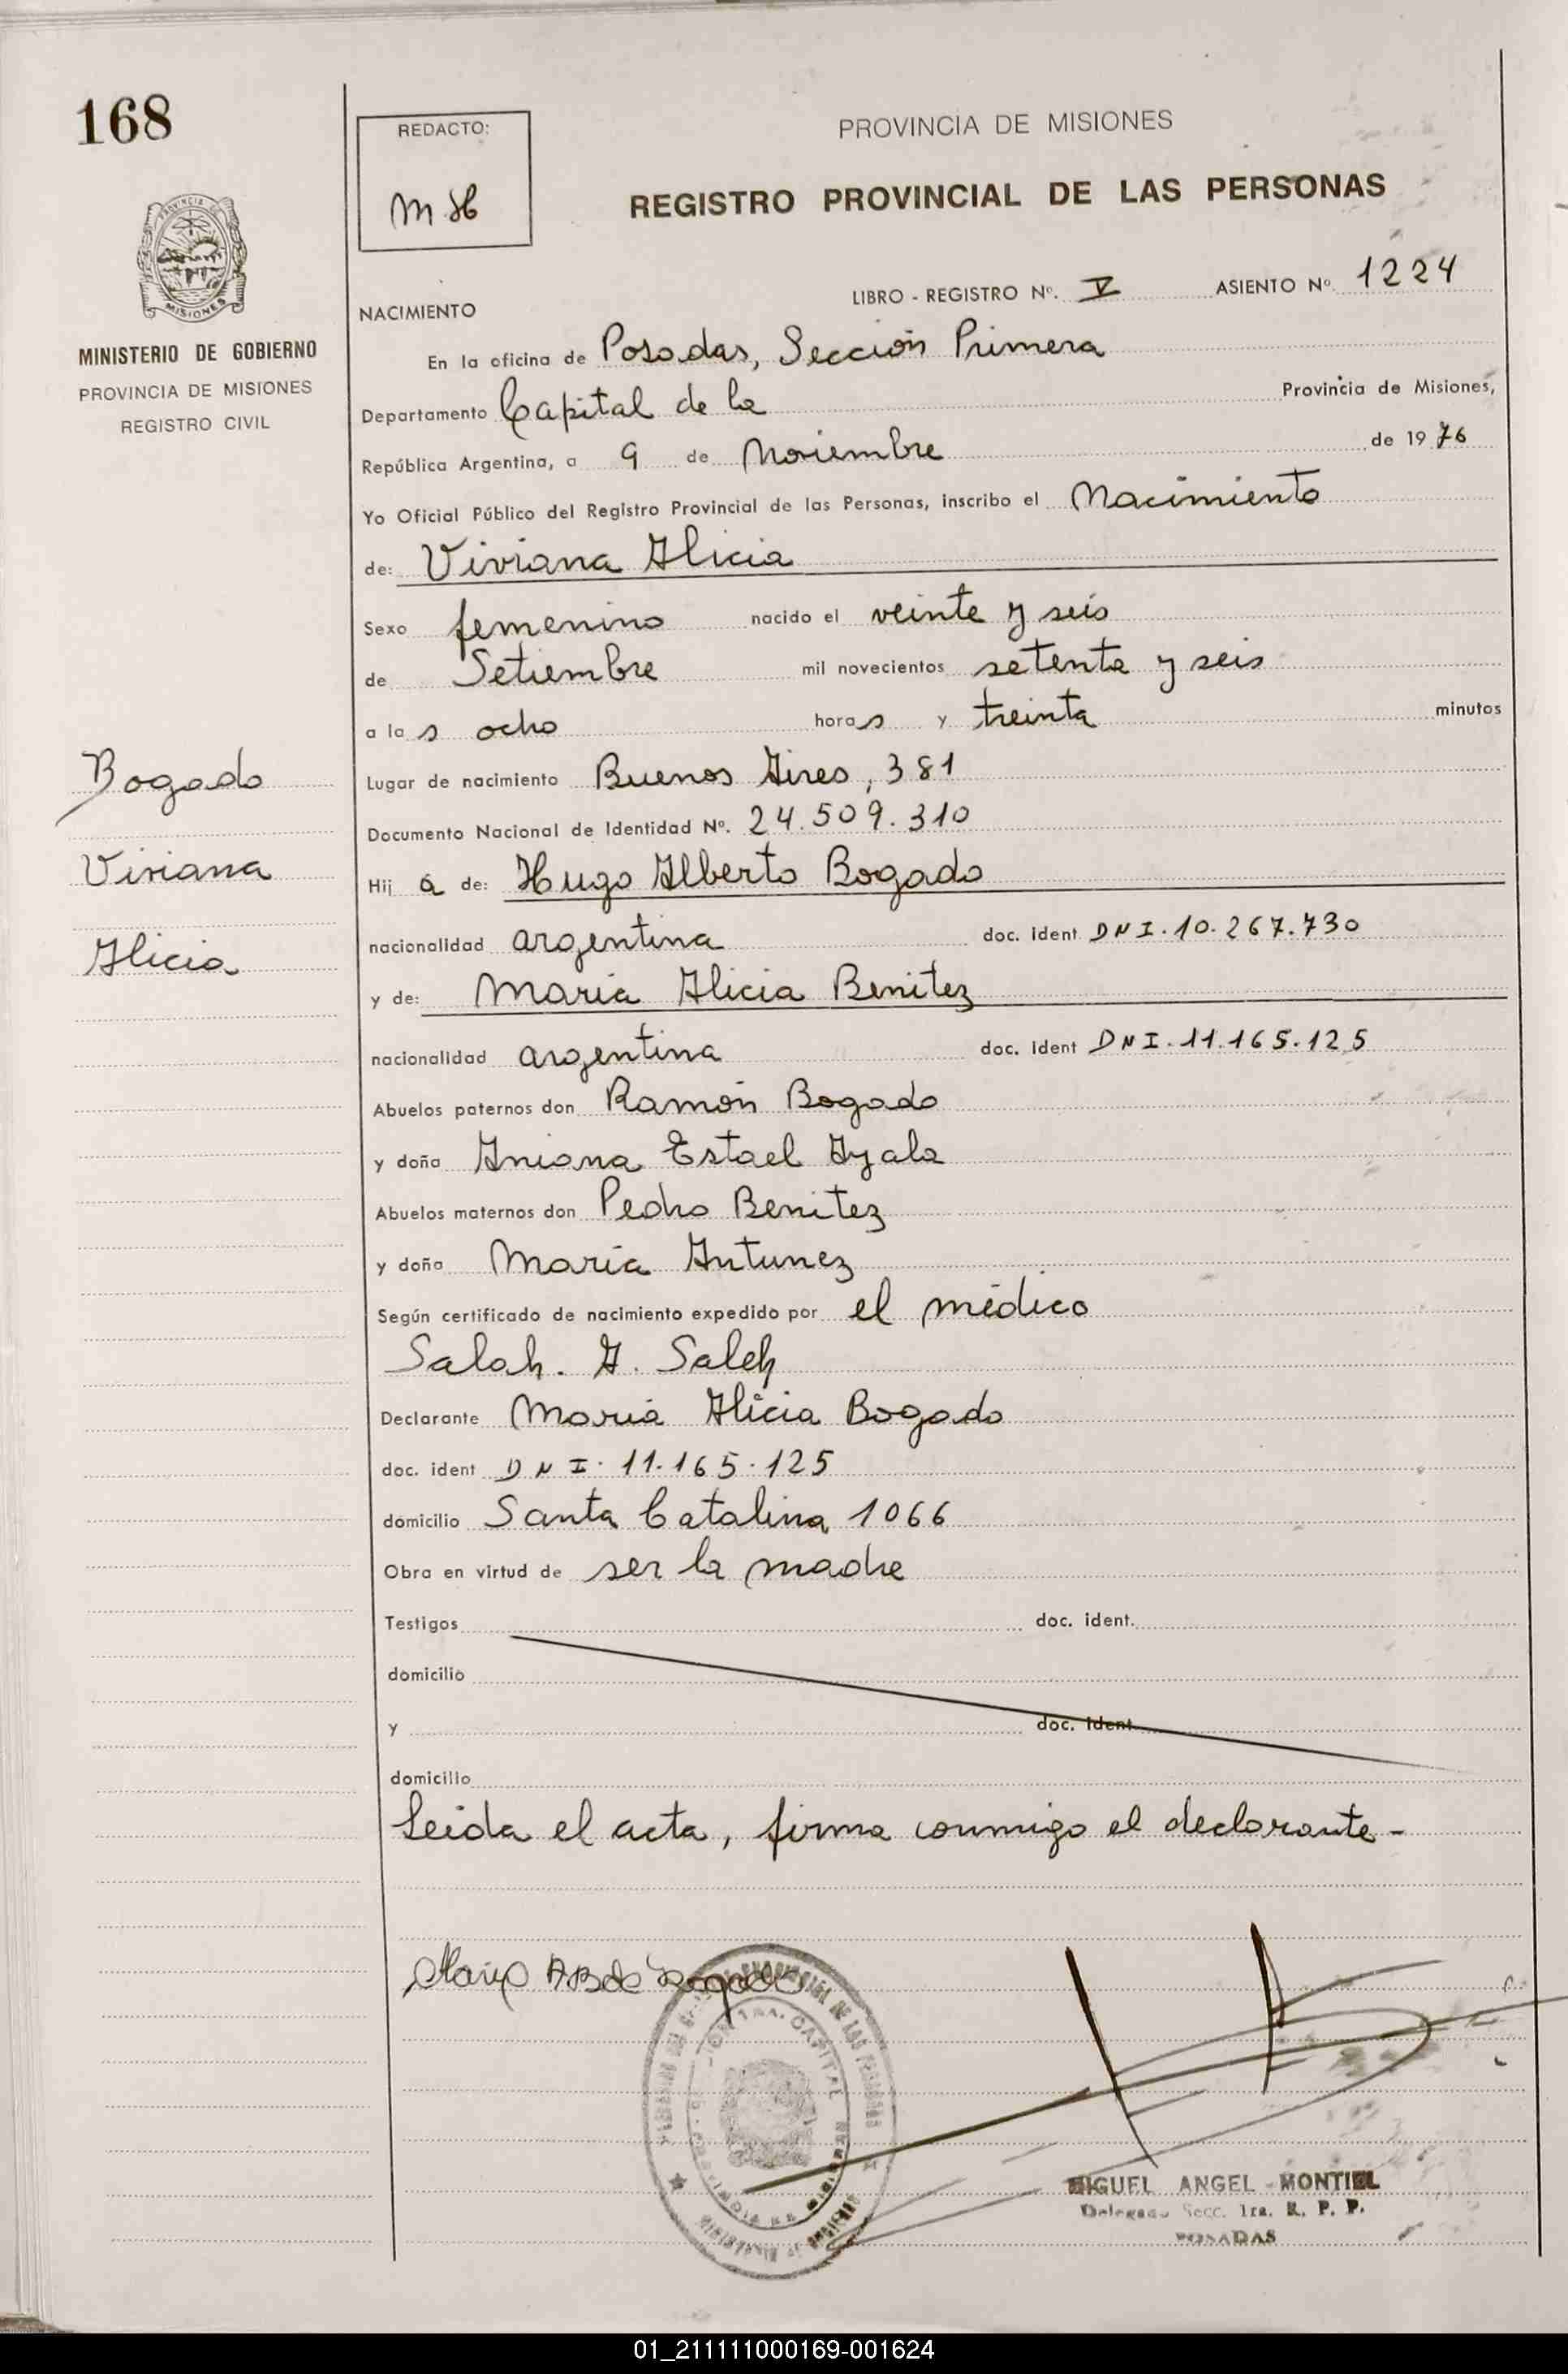 168
REDACTO:
M H
PROVINCIA DE MISIONES
REGISTRO PROVINCIAL DE LAS PERSONAS
PROVINCIA
MISIONES
MINISTERIO DE GOBIERNO
PROVINCIA DE MISIONES
REGISTRO CIVIL
NACIMIENTO
LIBRO - REGISTRO Nº. V ASIENTO Nº 1224
En la oficina de Posadas, Sección Primera
Departamento Capital de la Provincia de Misiones,
República Argentina, a 9 de Noviembre de 1976
Yo Oficial Público del Registro Provincial de las Personas, inscribo el Nacimiento
de: Viviana Alicia
Sexo femenino nacido el veinte y seis
de Setiembre mil novecientos setenta y seis
a las ocho horas y treinta minutos
Lugar de nacimiento Buenos Aires, 381
Documento Nacional de Identidad Nº. 24.509.310
Hija de: Hugo Alberto Bogado
nacionalidad argentina doc. ident DNI. 10.267.730
y de: María Alicia Benitez
nacionalidad argentina doc. ident DNI. 11.165.125
Abuelos paternos don Ramón Bogado
y doña Aniana Estael Ayala
Abuelos maternos don Pedro Benitez
y doña María Antunez
Según certificado de nacimiento expedido por el médico
Salah. A. Saleh
Declarante María Alicia Bogado
doc. ident DNI. 11.165.125
domicilio Santa Catalina 1066
Obra en virtud de ser la madre
Testigos doc. ident.
domicilio
y doc. ident
domicilio
Leída el acta, firma conmigo el declarante-
Bogado
Viviana
Alicia
María A B de Bogado
MIGUEL ANGEL MONTIEL
Delegado Secc. 1ra. R. P. P.
POSADAS
01_211111000169-001624